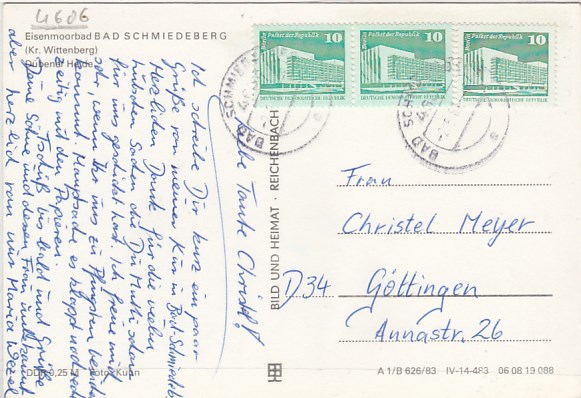 4606
Eisenmoorbad BAD SCHMIEDEBERG
(Kr. Wittenberg)
Dübener Heide
Berlin Palast der Republik 10
DEUTSCHE DEMOKRATISCHE REPUBLIK
Berlin Palast der Republik 10
DEUTSCHE DEMOKRATISCHE REPUBLIK
Berlin Palast der Republik 10
DEUTSCHE DEMOKRATISCHE REPUBLIK
BAD SCHMIEDEBERG
BAD SCHMIEDEBERG
Liebe Tante Christel!
Ich schreibe Dir kurz ein paar
Grüße von meiner Kur in Bad-Schmiedeb.
Herzlichen Dank für die vielen
hübschen Sachen die Du Mutti schon
für uns geschickt hast. Ich freue mich
sehr, wenn Ihr uns zu Pfingsten besuchen
kommt. Hauptsache es klappt noch recht-
zeitig mit den Papieren.
Tschüß bis bald und Grüße
Deine Söhne und dessen Frau unbekannt
aber herzlich von uns Maria Wezel
BILD UND HEIMAT · REICHENBACH
Frau
Christel Meyer
D34 Göttingen
Annastr. 26
DDR 0,25 M Foto: Kühn
A 1/B 626/83 IV-14-483 06 08 19 088